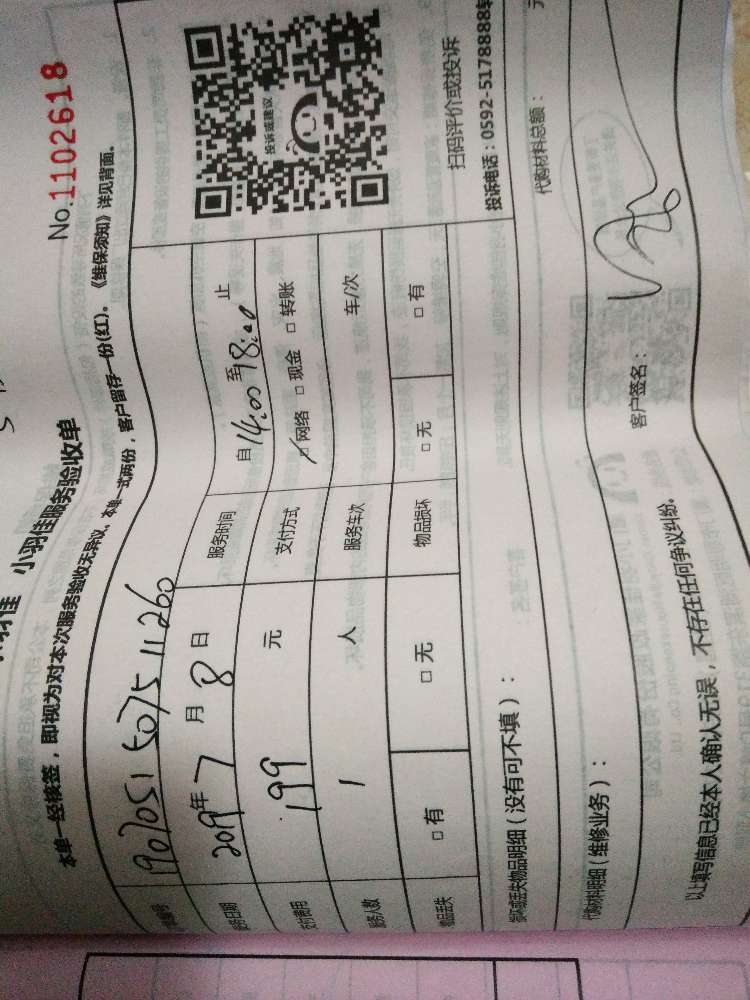 No.1102618
小羽佳服务验收单
本单一经横签，即视为对本次服务验收无异议。本单一式两份，客户留存一份(红)。《维保须知》详见背面。
编号 1907051507511260
服务日期 2019年 7 月 8 日 服务时间 自 14:00 至 18:00 止
支付费用 199 元 支付方式 网络 □ 现金 □ 转账
服务人数 1 人 服务车次 车/次
物品丢失 □ 有 □ 无 物品损坏 □ 无 □ 有
投诉或建议
扫码评价或投诉
投诉电话：0592-5178888转
损坏或丢失物品明细（没有可不填）：
代购材料明细（维修业务）： 代购材料总额： 元
以上填写信息已经本人确认无误，不存在任何争议纠纷。 客户签名：